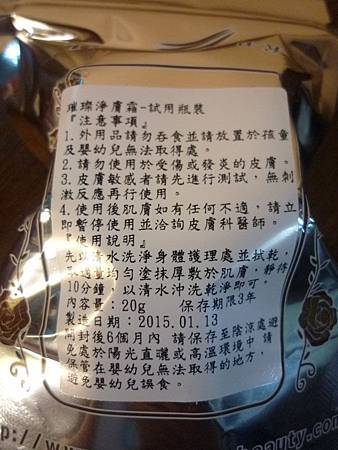 璀璨淨膚霜-試用瓶裝
『注意事項』
1.外用品請勿吞食並請放置於孩童
及嬰幼兒無法取得處。
2.請勿使用於受傷或發炎的皮膚。
3.皮膚敏感者請先進行測試，無刺
激反應再行使用。
4.使用後肌膚如有任何不適，請立
即暫停使用並洽詢皮膚科醫師。
『使用說明』
先以清水洗淨身體護理處並拭乾，
取適量均勻塗抹厚敷於肌膚，靜待
10分鐘，以清水沖洗乾淨即可。
內容量：20g 保存期限3年
製造日期：2015.01.13
開封後6個月內 請保存至陰涼處避
免處於陽光直曬或高溫環境中 請
保管在嬰幼兒無法取得的地方，
避免嬰幼兒誤食。
beauty.com/